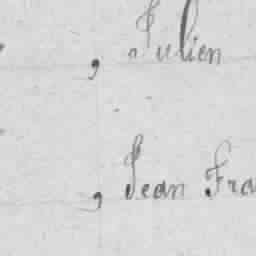 , Julien
, Jean Fra